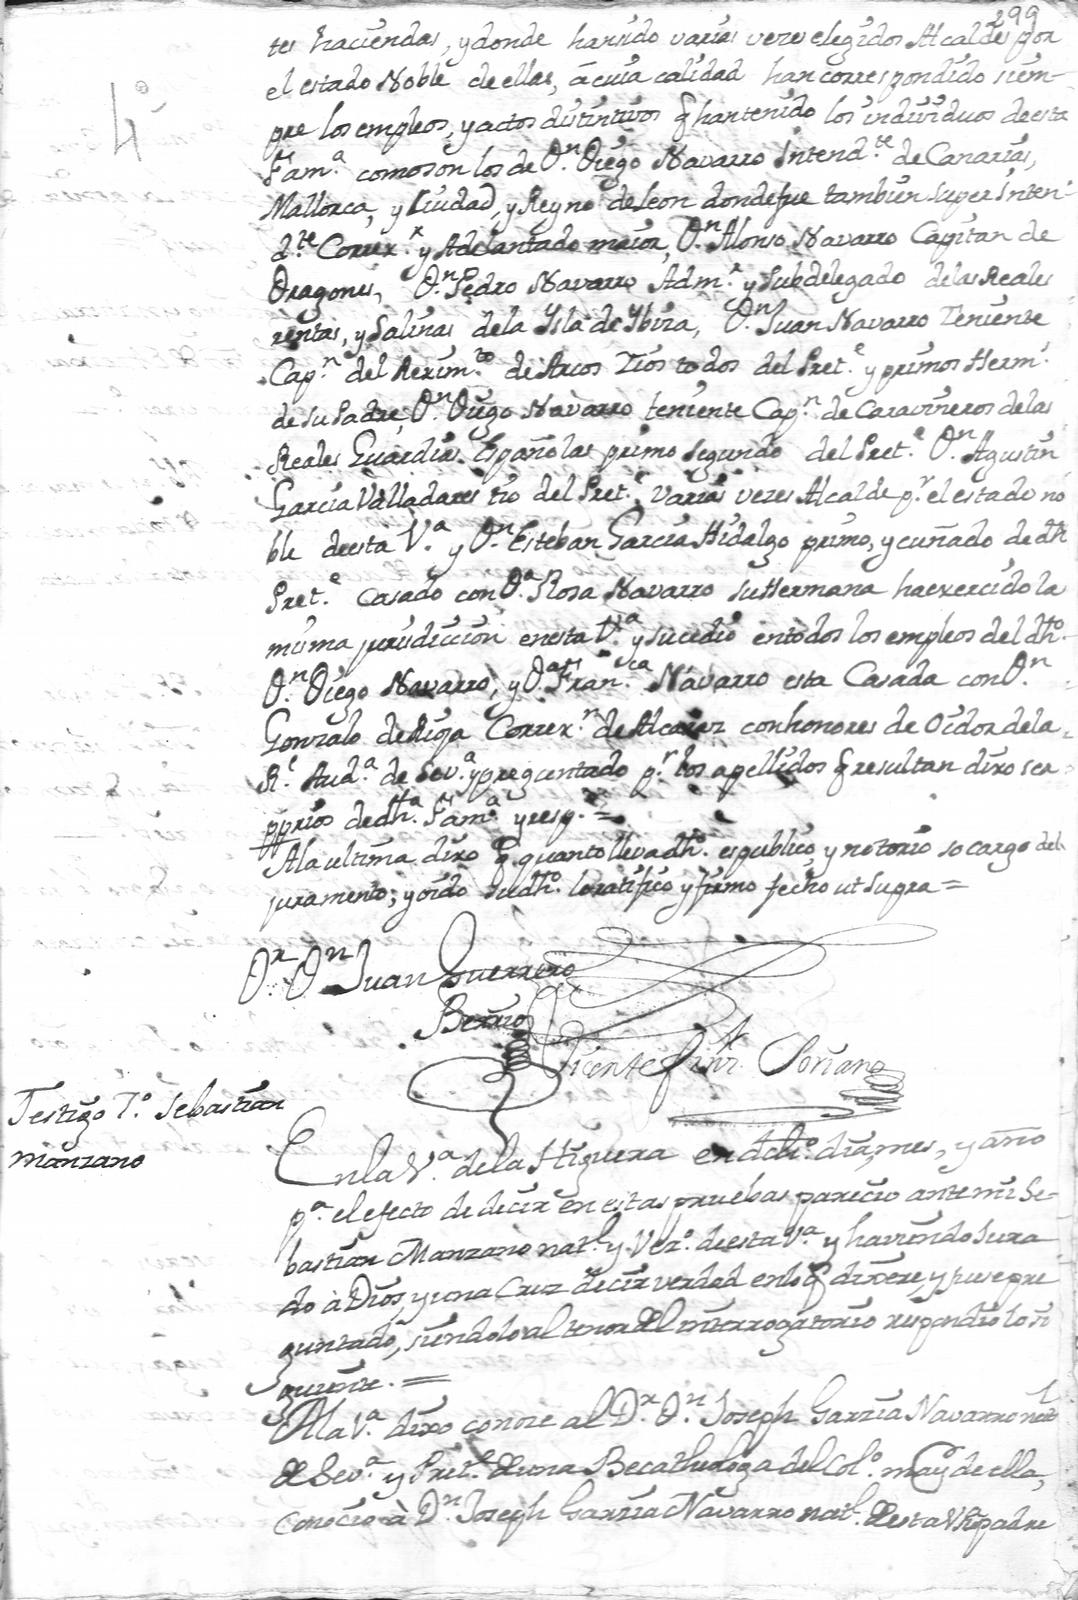 299
4º
tes haciendas, y donde han sido varias vezes elegidos Alcaldes por
el estado Noble de ellas, â cuia calidad han correspondido siem-
pre los empleos, y actos distintivos q han tenido los individuos de esta
Famª como son los de Dn Diego Navarro Intendte de Canarias,
Mallorca, y Ciudad, y Reyno de Leon donde fue tambien Super Inten-
dte Correxr y Adelantado maior, Dn Alonso Navarro Capitan de
Dragones, Dn Pedro Navarro Admr y Subdelegado de las Reales
rentas, y Salinas de la Ysla de Ybiza, Dn Juan Navarro Teniente
Capn del Reximto de Arcos Tios todos del Prete y primos Herms
de su Padre, Dn Diego Navarro teniente Capn de Caravineros de las
Reales Guardias Españolas primo segundo del Prete Dn Agustin
Garcia Valladares tio del Prete varias vezes Alcalde pr el estado no
ble de esta Vª y Dn Esteban Garcia Hidalgo primo, y cuñado de dh
Prete Casado con Dª Rosa Navarro su Hermana ha exercido la
misma jurisdiccion en esta Vª y sucedio en todos los empleos del dho
Dn Diego Navarro, y Dª Franca Navarro esta Casada con Dn
Gonzalo de Rioja Correxr de Alcaraz con honores de Oidor de la
Rl Audª de Sevª y preguntado pr los apellidos q resultan dixo ser
pprios de dha Famª y resp. =
A la ultima dixo q quanto lleva dho es publico, y notorio so cargo del
juramento; y oido su dho lo ratifico y firmo fecho ut supra =
Dr Dn Juan Guerrero
Berrio
Vicente Soriano
Testigo 7º Sebastian
Manzano
En la Vª de la Higuera en dcho dia, mes, y año
pª el efecto de decir en estas pruebas parecio ante mi Se-
bastian Manzano natl y Vezº de esta Vª y haviendo jura
do â Dios, y una Cruz decir verdad en lo q dixere, y fuese pre
guntado, siendolo al tenor del interrogatorio respondio lo si
guiente. =
A la Vª dixo conoce al Dr Dn Joseph Garzia Navarro natl
de Sevª y Prete de una Beca theologa del Colº mayr de ella,
conocio â Dn Joseph Garzia Navarro natl de esta Vª padre